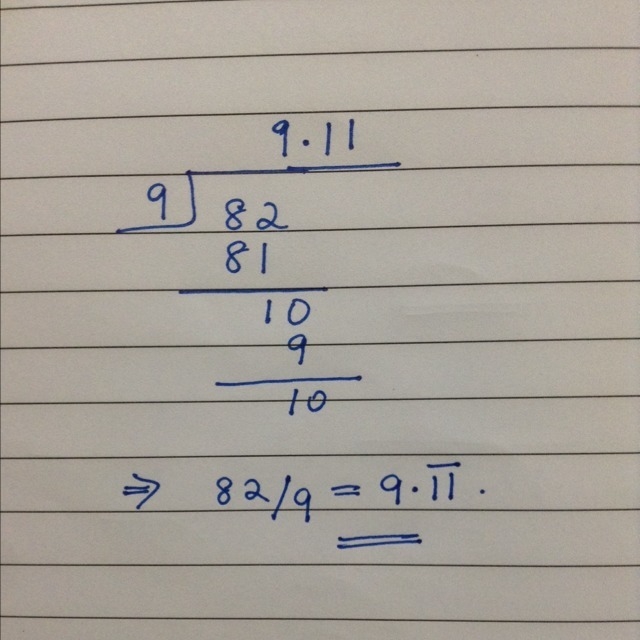 9.11
9 82
81
10
9
10
⇒ 82/9 = 9.1̅1̅.